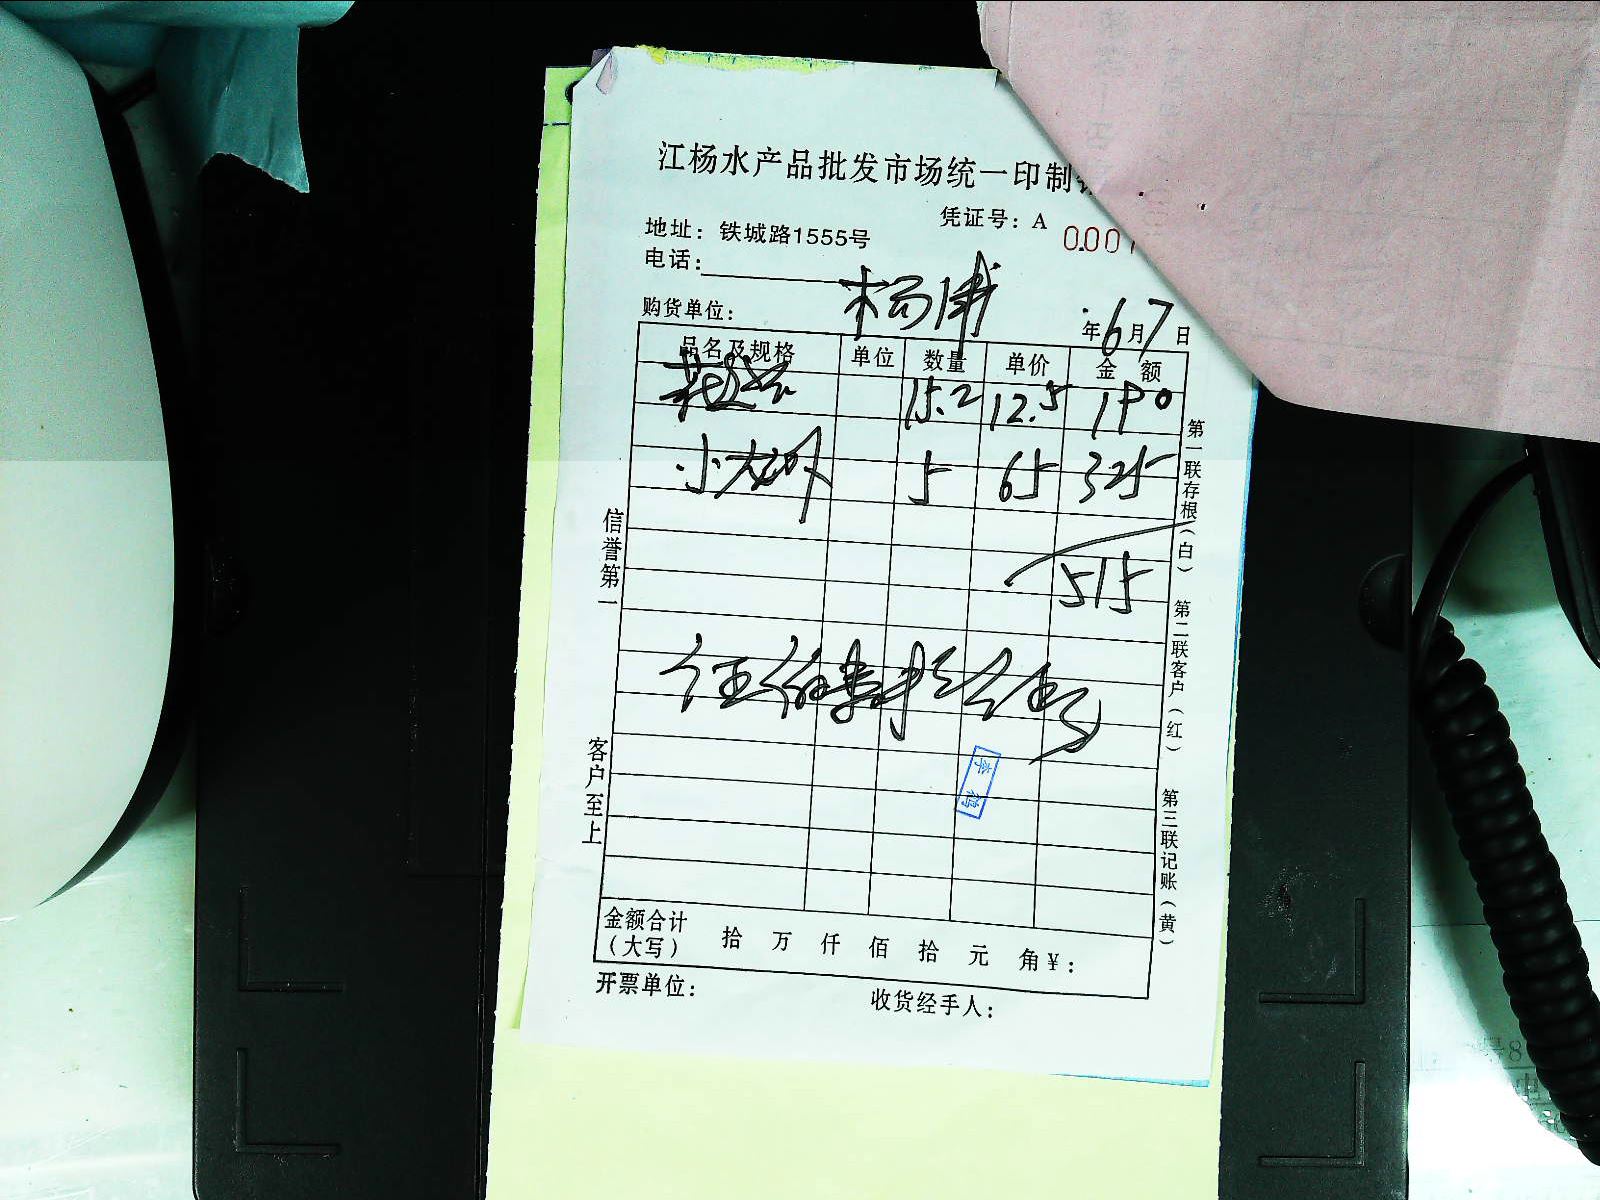 江杨水产品批发市场统一印制
凭证号：A 0001
地址：铁城路1555号
电话：
购货单位： 杨浦 年6月7日
品名及规格 单位 数量 单价 金额
15.2 12.5 190
小龙虾 5 65 325
515
信誉第一
客户至上
第一联存根（白） 第二联客户（红） 第三联记账（黄）
李鹤
金额合计（大写） 拾 万 仟 佰 拾 元 角￥：
开票单位： 收货经手人：